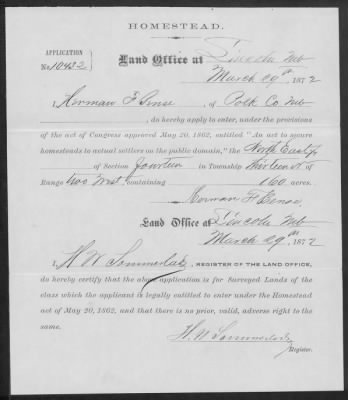 HOMESTEAD.
APPLICATION
No. 10432
Land Office at Lincoln Neb
March 29th, 1872
I, Herman F Bense, of Polk Co. Neb
do hereby apply to enter, under the provisions
of the act of Congress approved May 20, 1862, entitled "An act to secure
homesteads to actual settlers on the public domain," the North East 1/4
of Section fourteen in Township thirteen N of
Range two West containing 160 acres.
Herman F. Bense
Land Office at Lincoln Neb
March 29th, 1872
I, H. W. Sommerlad, REGISTER OF THE LAND OFFICE,
do hereby certify that the above application is for Surveyed Lands of the
class which the applicant is legally entitled to enter under the Homestead
act of May 20, 1862, and that there is no prior, valid, adverse right to the
same.
H. W. Sommerlad,
Register.